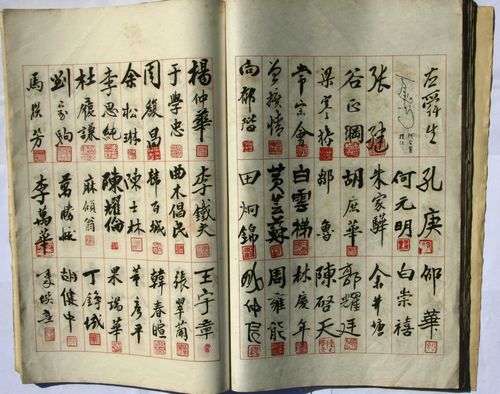 左舜生 孔庚 邵華
何元明 白崇禧
張繼 朱家驊 余井塘
谷正綱 胡庶華 郭耀廷
梁寒操 鄒魯 陳啓天
常宗會 白雲梯 林慶年
曾擴情 黃芸蘇 周雍能
向郁階 田炯錦
楊仲華 李鐵夫 王宇章
于學忠 曲木倡民 張翠蘭
周駿昌 韓百城 韓春暄
余松琳 陳士林 黃彥平
李思純 陳耀倫 果端華
杜履謙 麻傾翁 丁錚城
劉家駒 胡健中
李萬華